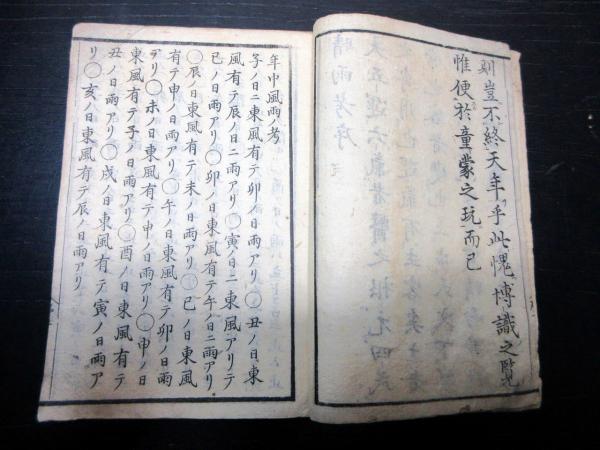 剡豈不終天年乎此愧博識之覽
惟便於童蒙之玩而已
年中風雨ノ考
子ノ日ニ東風有テ卯ノ日雨アリ〇丑ノ日東
風有テ辰ノ日ニ雨アリ〇寅ノ日ニ東風アリテ
巳ノ日雨アリ〇卯ノ日東風有テ午ノ日ニ雨アリ
〇辰ノ日東風有テ未ノ日雨アリ〇巳ノ日東風
有テ申ノ日雨アリ〇午ノ日東風有テ卯ノ日雨
アリ〇未ノ日東風有テ申ノ日雨アリ〇申ノ日
東風有テ子ノ日雨アリ〇酉ノ日東風有テ
丑ノ日雨アリ〇戌ノ日東風有テ寅ノ日雨ア
リ〇亥ノ日東風有テ辰ノ日雨アリ